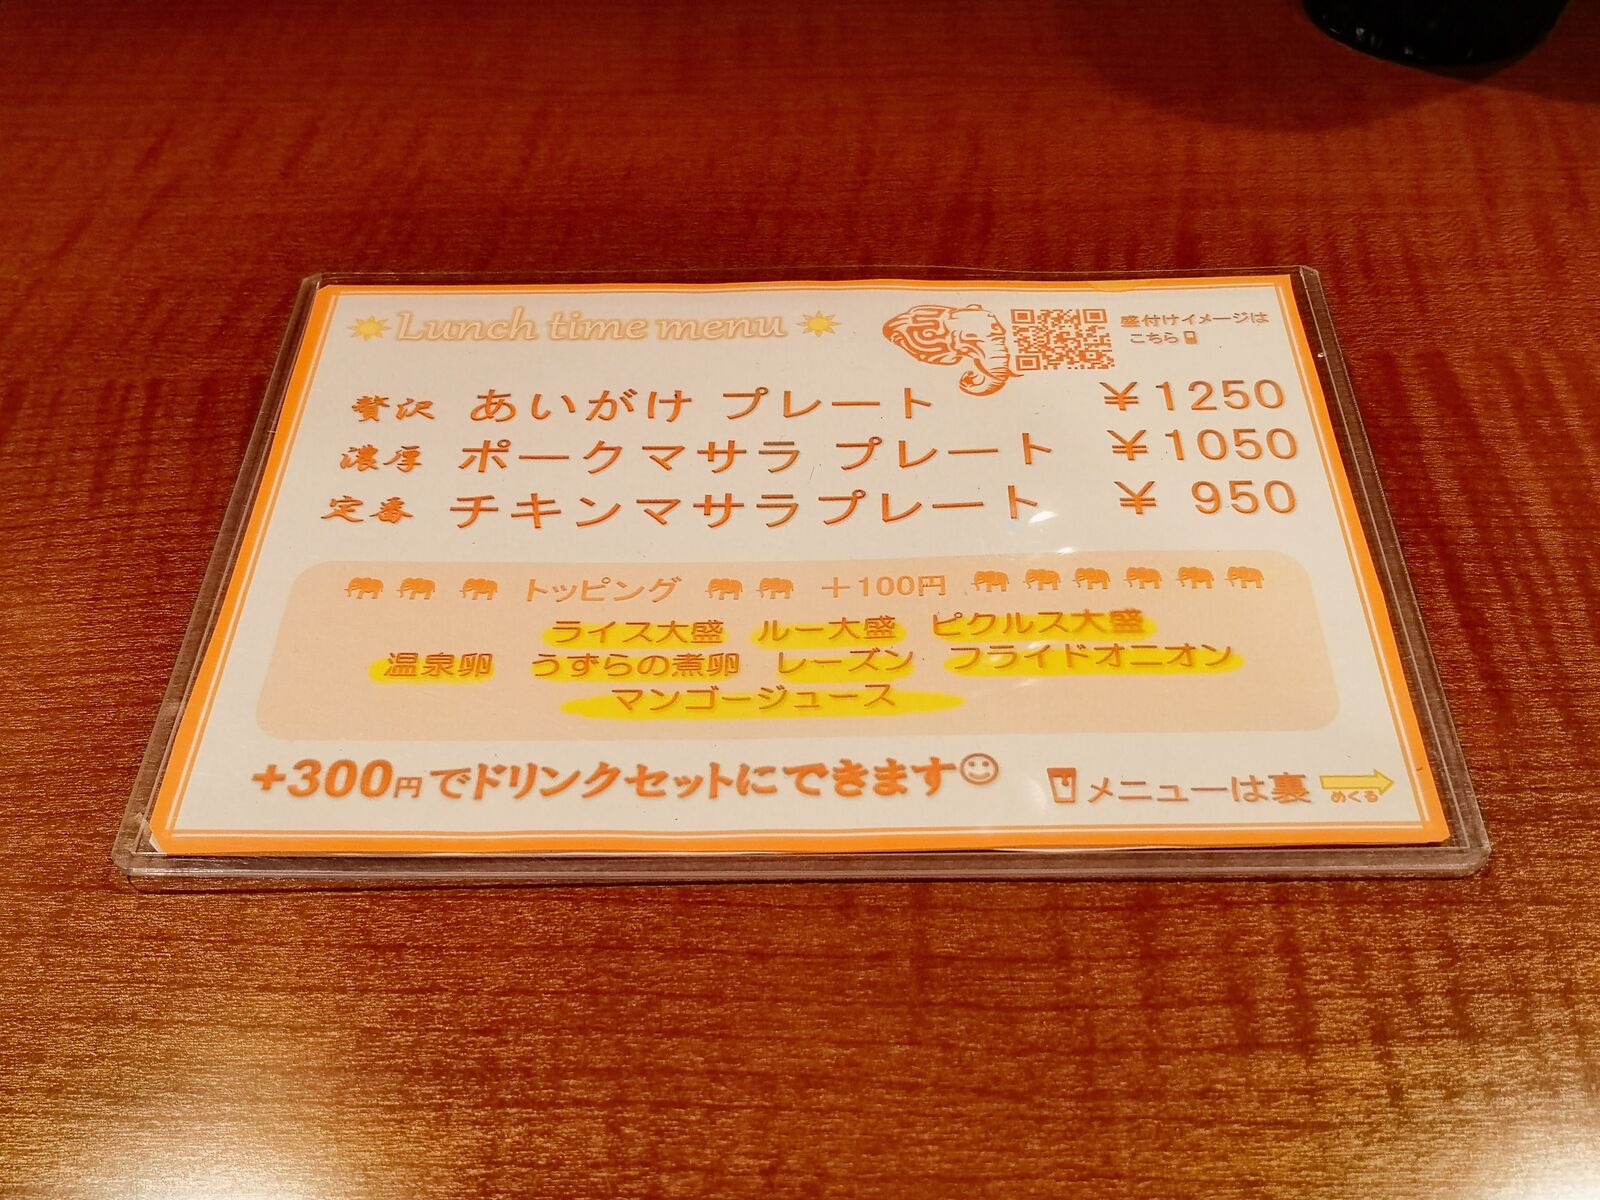 Lunch time menu
盛付けイメージは
こちら
贅沢 あいがけ プレート ￥1250
濃厚 ポークマサラ プレート ￥1050
定番 チキンマサラプレート ￥ 950
トッピング ＋100円
ライス大盛 ルー大盛 ピクルス大盛
温泉卵 うずらの煮卵 レーズン フライドオニオン
マンゴージュース
+300円でドリンクセットにできます
メニューは裏
めくる